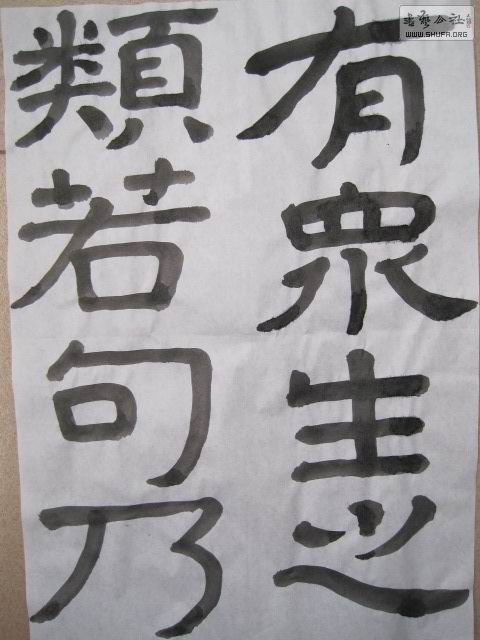 有眾生之
類若句乃
書藝公社
WWW.SHUFA.ORG